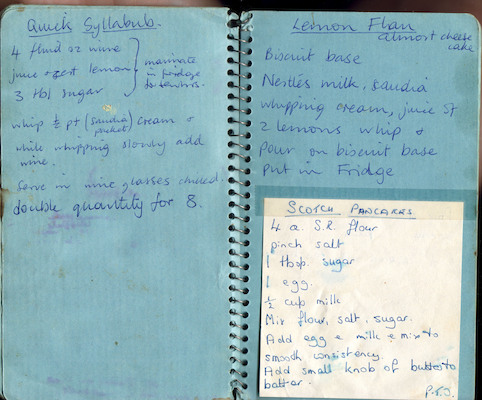 Quick Syllabub.
4 fluid oz wine
juice + zest lemon
3 tbl sugar
marinate
in fridge
for
whip ½ pt (saudia packet) cream +
while whipping slowly add
wine.
Serve in wine glasses chilled.
double quantity for 8.
Lemon Flan
almost cheese
cake
Biscuit base
Nestles milk, saudia
whipping cream, juice of
2 lemons whip +
pour on biscuit base
put in Fridge
SCOTCH PANCAKES
4 S.R. flour
pinch salt
1 tbsp. sugar
1 egg.
½ cup milk
Mix flour, salt, sugar.
Add egg & milk & mix to
smooth consistency.
Add small knob of butter to
batter.